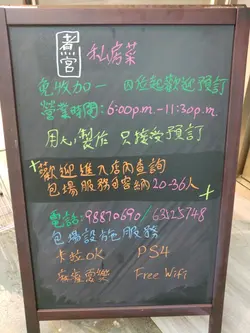 煮宮 私房菜
免收加一 四位起歡迎預訂
營業時間：6:00p.m.-11:30p.m.
用心製作 只接受預訂
歡迎進入店內查詢
包場服務可容納20-36人
電話：98870690/63125748
包場設施服務
卡拉OK PS4
麻雀耍樂 Free Wifi